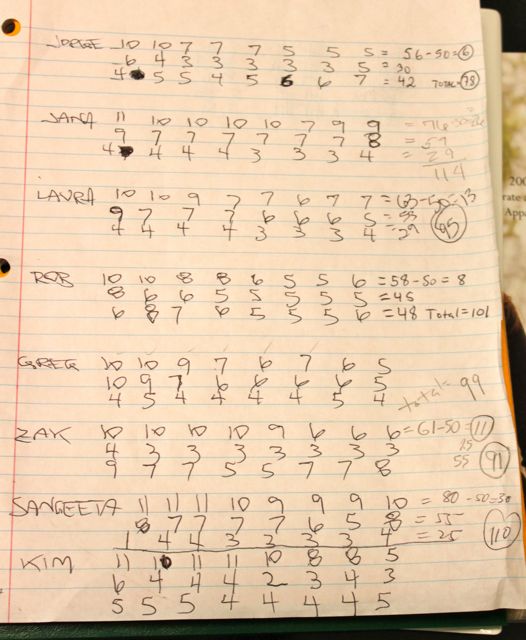 JORGE 10 10 7 7 7 5 5 5 = 56-50=6
6 4 3 3 3 3 3 5 = 30
4 5 5 4 5 6 6 7 = 42 TOTAL=78
JANA 11 10 10 10 10 7 9 9 = 76-50=26
9 7 7 7 7 7 7 8 = 59
4 4 4 4 3 3 3 4 = 29
114
LAURA 10 10 9 7 7 6 7 7 = 63-50=13
9 7 7 7 6 6 6 5 = 53
4 4 4 4 3 3 3 4 = 29 95
ROB 10 10 8 8 6 5 5 6 = 58-50 = 8
8 6 6 5 5 5 5 5 = 45
6 8 7 6 5 5 5 6 = 48 Total=101
GREG 10 10 9 7 6 7 6 5
10 9 7 6 6 6 6 5
4 5 4 4 4 4 5 4 total= 99
ZAK 10 10 10 10 9 6 6 6 = 61-50=11
4 3 3 3 3 3 3 3 25
9 7 7 5 5 7 7 8 55 91
SANGEETA 11 11 11 10 9 9 9 10 = 80 -50=30
8 7 7 7 7 6 5 8 = 55
1 4 4 3 3 3 3 4 = 25 110
KIM 11 10 11 11 10 8 8 5
6 4 4 4 2 3 4 3
5 5 5 4 4 4 4 5
200